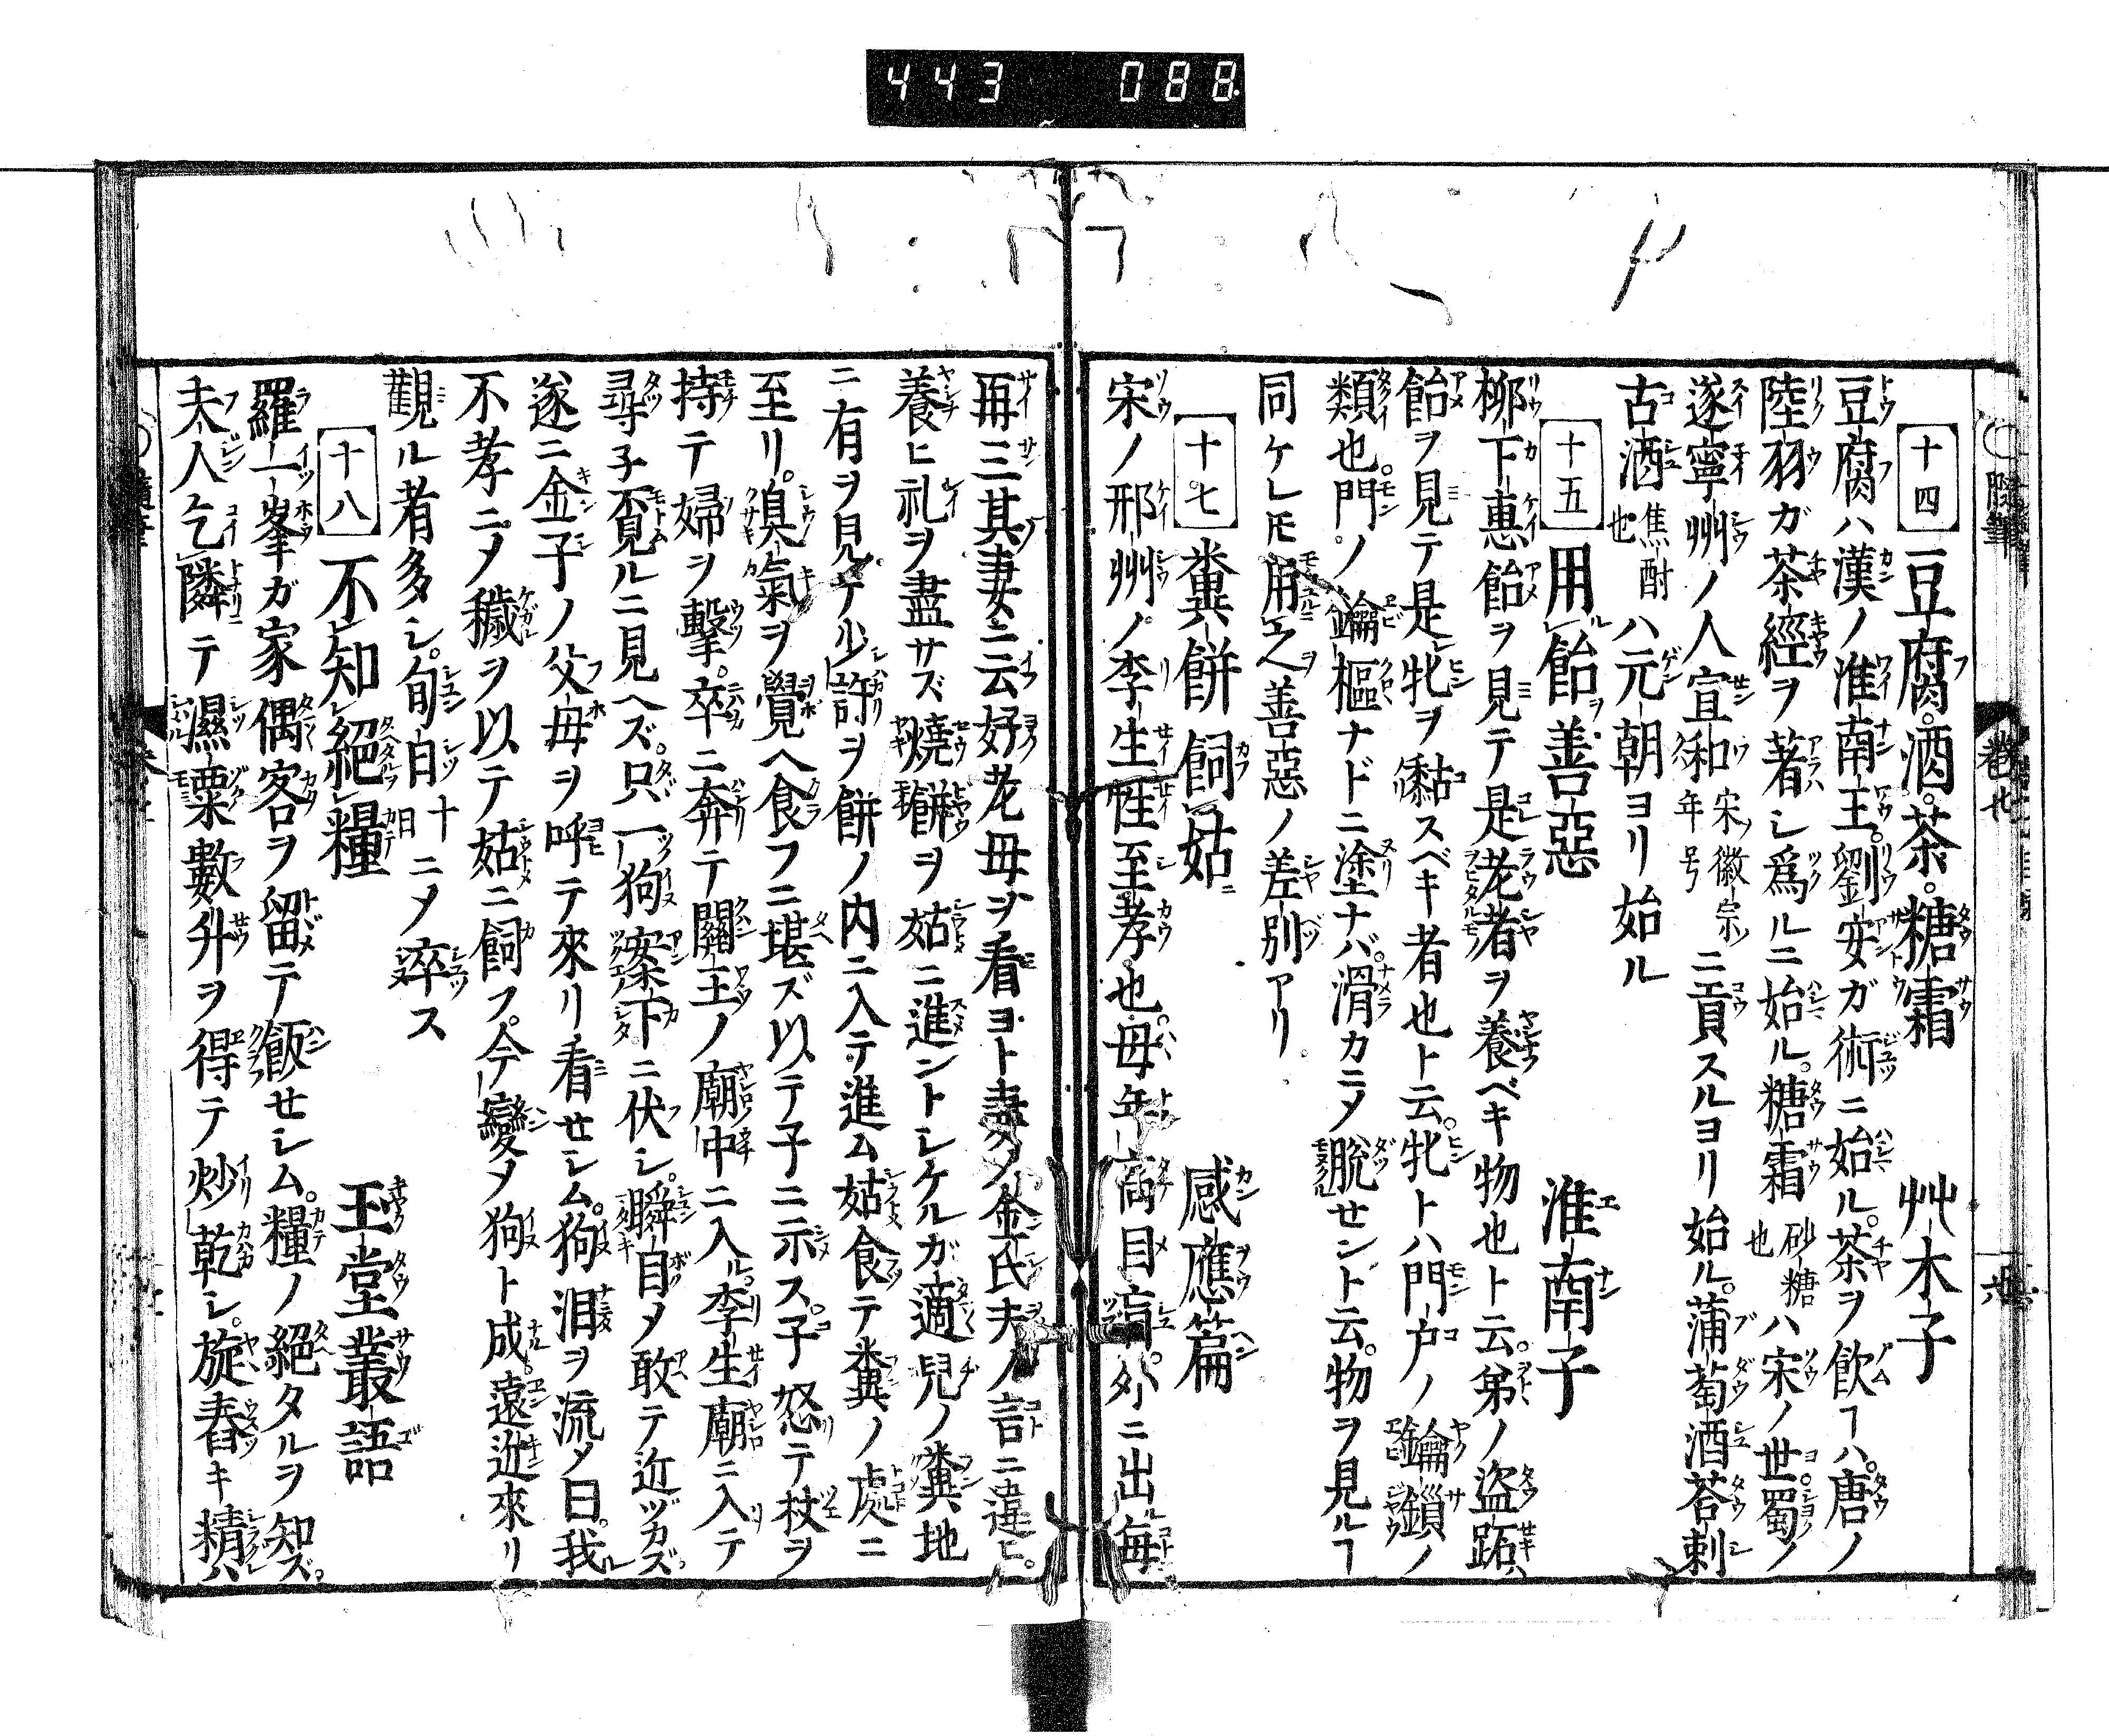 443 088
十四 豆腐。酒。茶。糖霜 艸木子
豆腐ハ漢ノ淮南王。劉安ガ術ニ始ル。茶ヲ飲ヿハ。唐ノ
陸羽ガ茶經ヲ著シ爲ルニ始ル。糖霜 砂糖也 ハ宋ノ世。蜀ノ
遂寧州ノ人宣和 宋ノ徽宗ノ年号 ニ貢スルヨリ始ル。蒲萄酒荅剌
古酒 焦酎也 ハ元朝ヨリ始ル
十五 用飴善惡 淮南子
柳下惠飴ヲ見テ是老者ヲ養ベキ物也ト云。弟ノ盗跖ハ
飴ヲ見テ是牝ヲ黏スベキ者也ト云。牝トハ門户ノ鑰鎖ノ
類也。門ノ鑰樞ナドニ塗ナバ。滑カニメ脱セント云。物ヲ見ルヿ
同ケレ𪜈用之善惡ノ差別アリ
十七 糞餅飼姑 感應篇
宋ノ邢州ノ李生性至孝也。母年高目盲。外ニ出毎
再三其妻ニ云好老母ヲ看ヨト妻ノ金氏夫ノ言ニ違ヒ。
養ヒ礼ヲ盡サズ燒餅ヲ姑ニ進ントシケルガ適兒ノ糞地
ニ有ヲ見テ少許ヲ餅ノ内ニ入テ進ム姑食テ糞ノ處ニ
至リ。臭氣ヲ覺ヘ食フニ堪ズ以テ子ニ示ス。子怒テ杖ヲ
持テ婦ヲ擊。卒ニ奔テ關王ノ廟中ニ入ル。李生廟ニ入テ
尋子覓ルニ見ヘズ。只一狗案下ニ伏シ。瞬目メ敢テ近ヅカズ。
遂ニ金子ノ父母ヲ呼テ來リ看せシム。狗泪ヲ流メ曰。我
不孝ニメ穢ヲ以テ姑ニ飼フ。今變メ狗ト成。遠近來リ
觀ル者多シ。旬日 十日 ニメ卒ス
十八 不知絕糧 玉堂叢語
羅一峯ガ家偶客ヲ留テ飯せシム。糧ノ絕タルヲ知ズ。
夫人乞隣テ濕粟數升ヲ得テ炒乾シ。旋舂キ精ハ